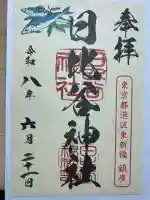 奉拝
東京都港区東新橋 鎮座
日比谷神社
令和八年
六月二十一日